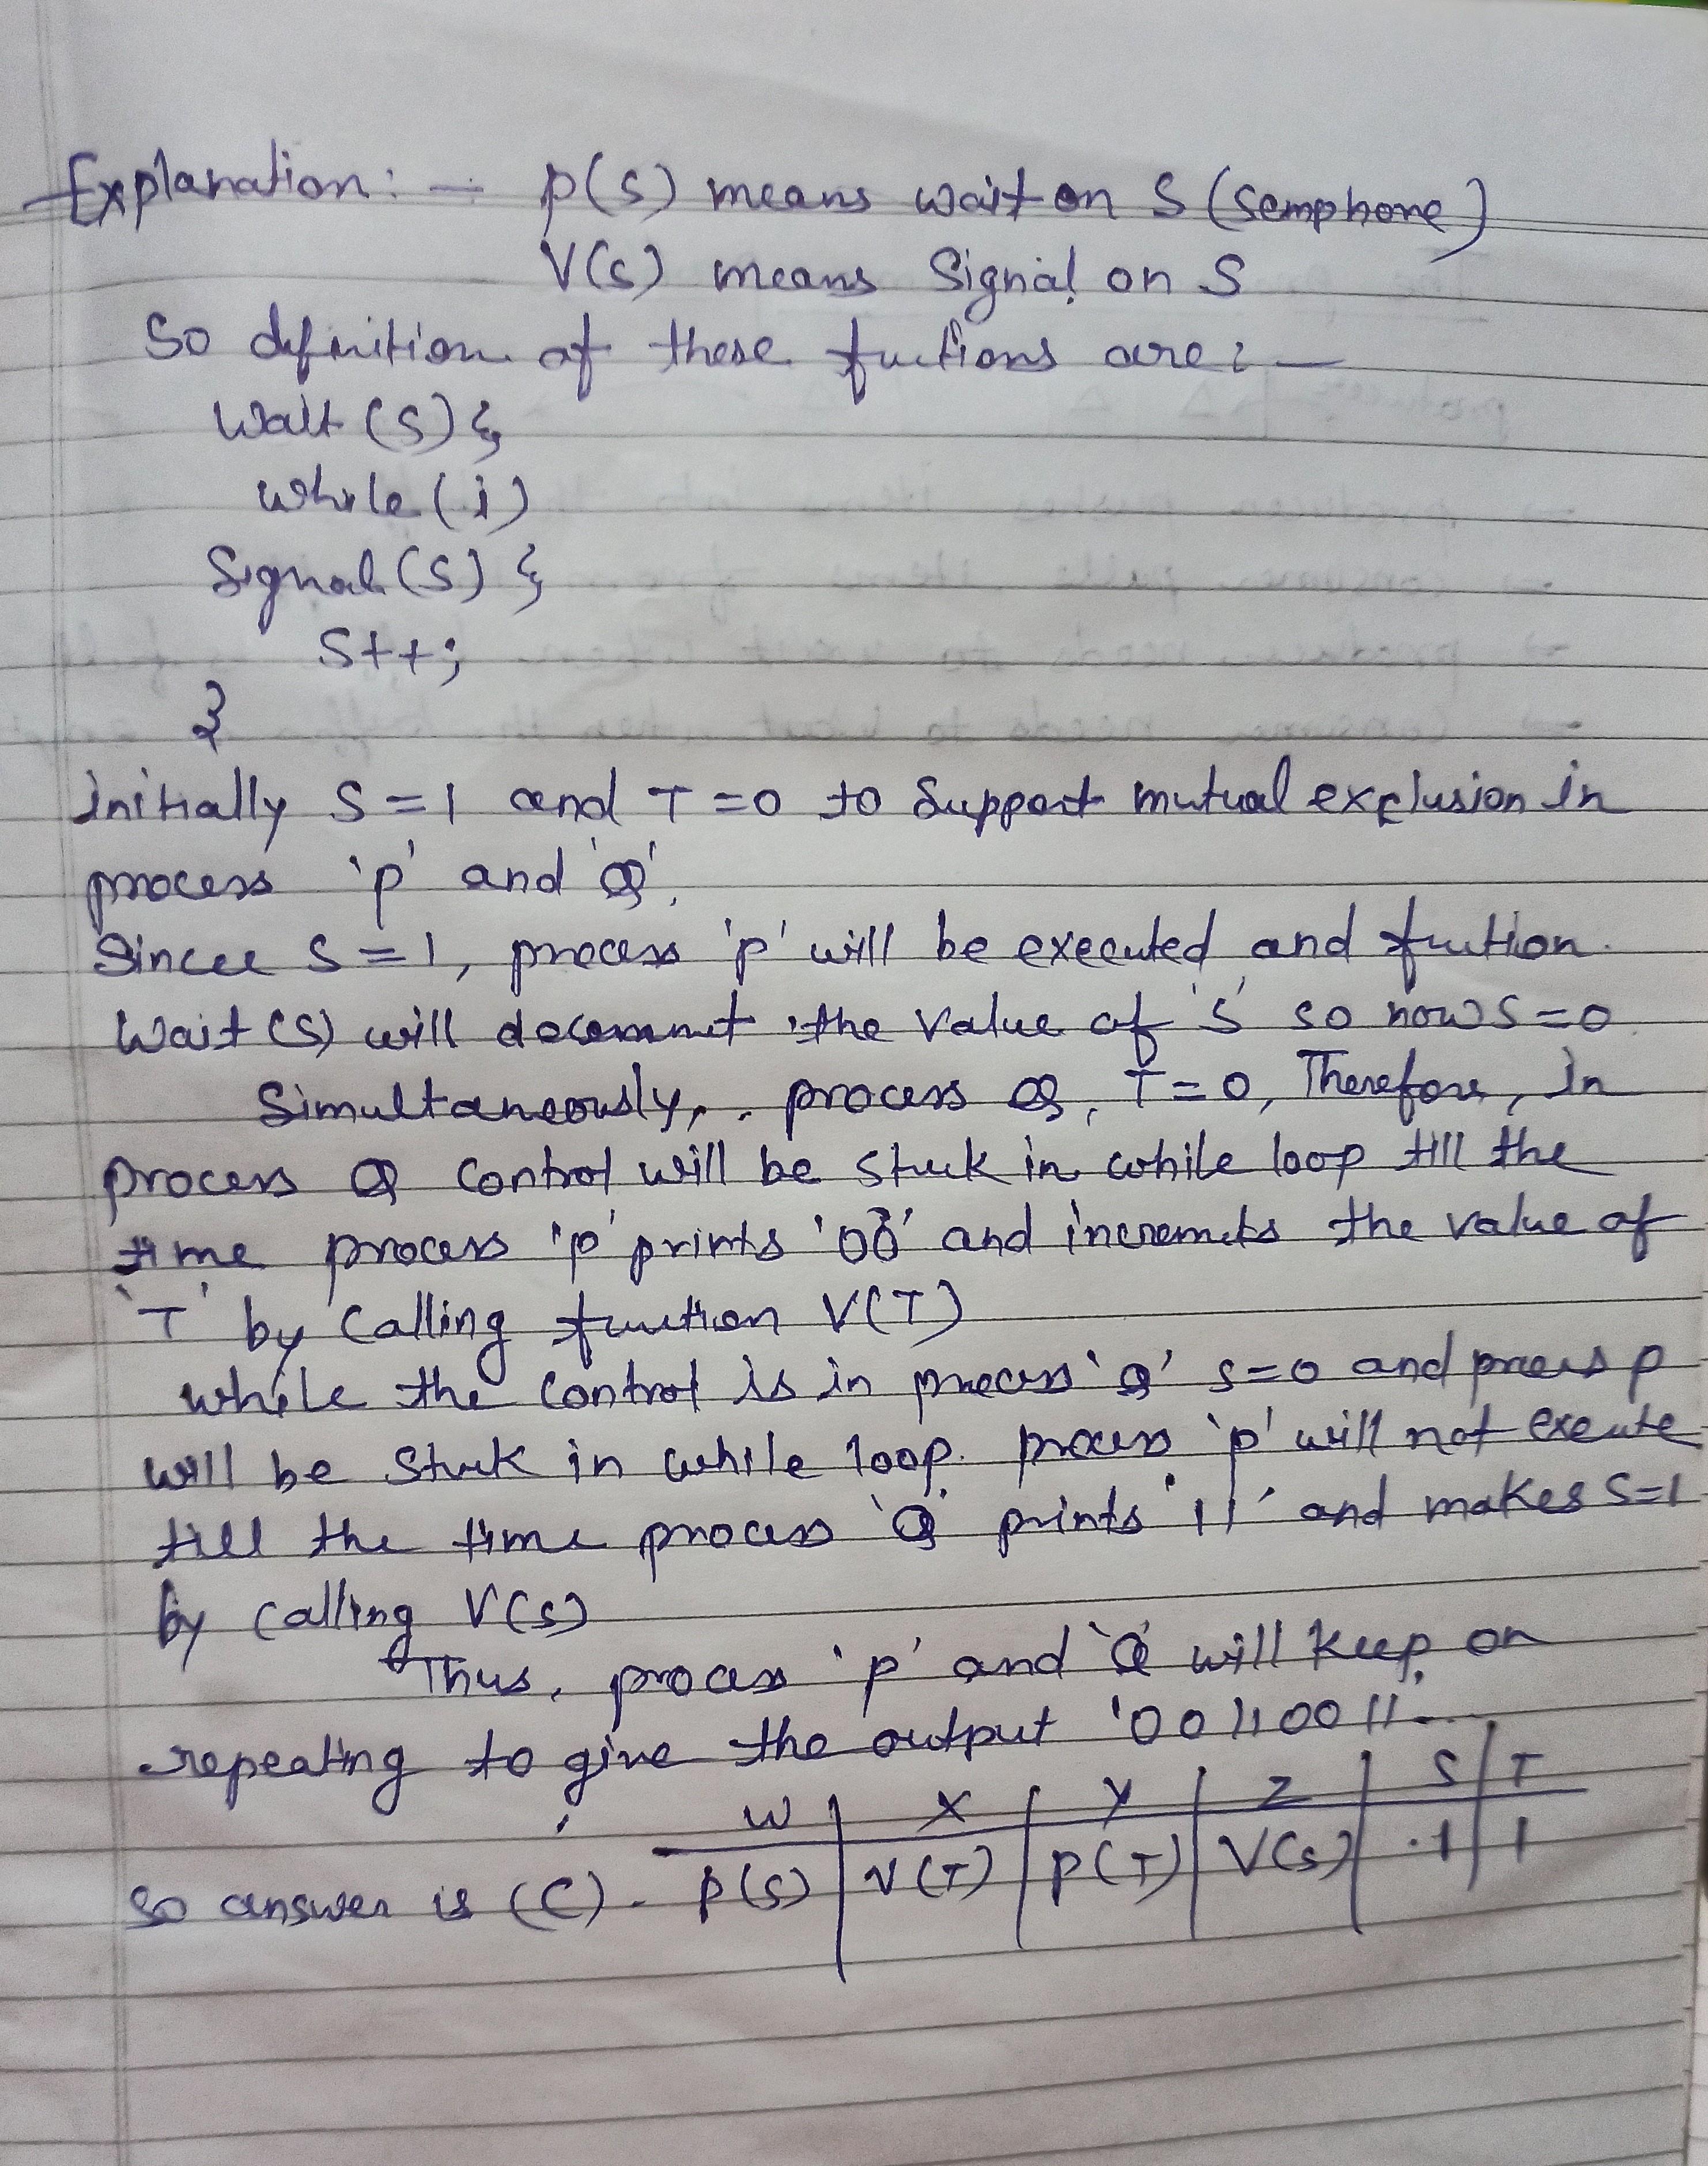 Explanation: - p(s) means wait on S (semphone)
V(s) means Signal on S
So definition of these fuctions are: -
Wait (S) {
while (i)
Signal (S) {
S++;
}
initially S=1 and T=0 to support mutual exclusion in
process 'p' and 'Q'.
Sincee S=1, process 'p' will be executed and fuction.
Wait (S) will decement the value of 'S' so now S=0.
Simultaneously, process Q, T=0, Therefore, in
process Q control will be stuck in while loop till the
time process 'p' prints '00' and incremets the value of
'T' by calling function V(T)
while the control is in process 'Q' S=0 and process p
will be stuck in while loop. process 'p' will not exeute
till the time process 'Q' prints '11' and makes S=1
by calling V(s)
Thus, process 'p' and 'Q' will keep on
repeating to give the output '00110011...
W X Y Z S T
so answer is (C). P(S) V(T) P(T) V(S) 1 1